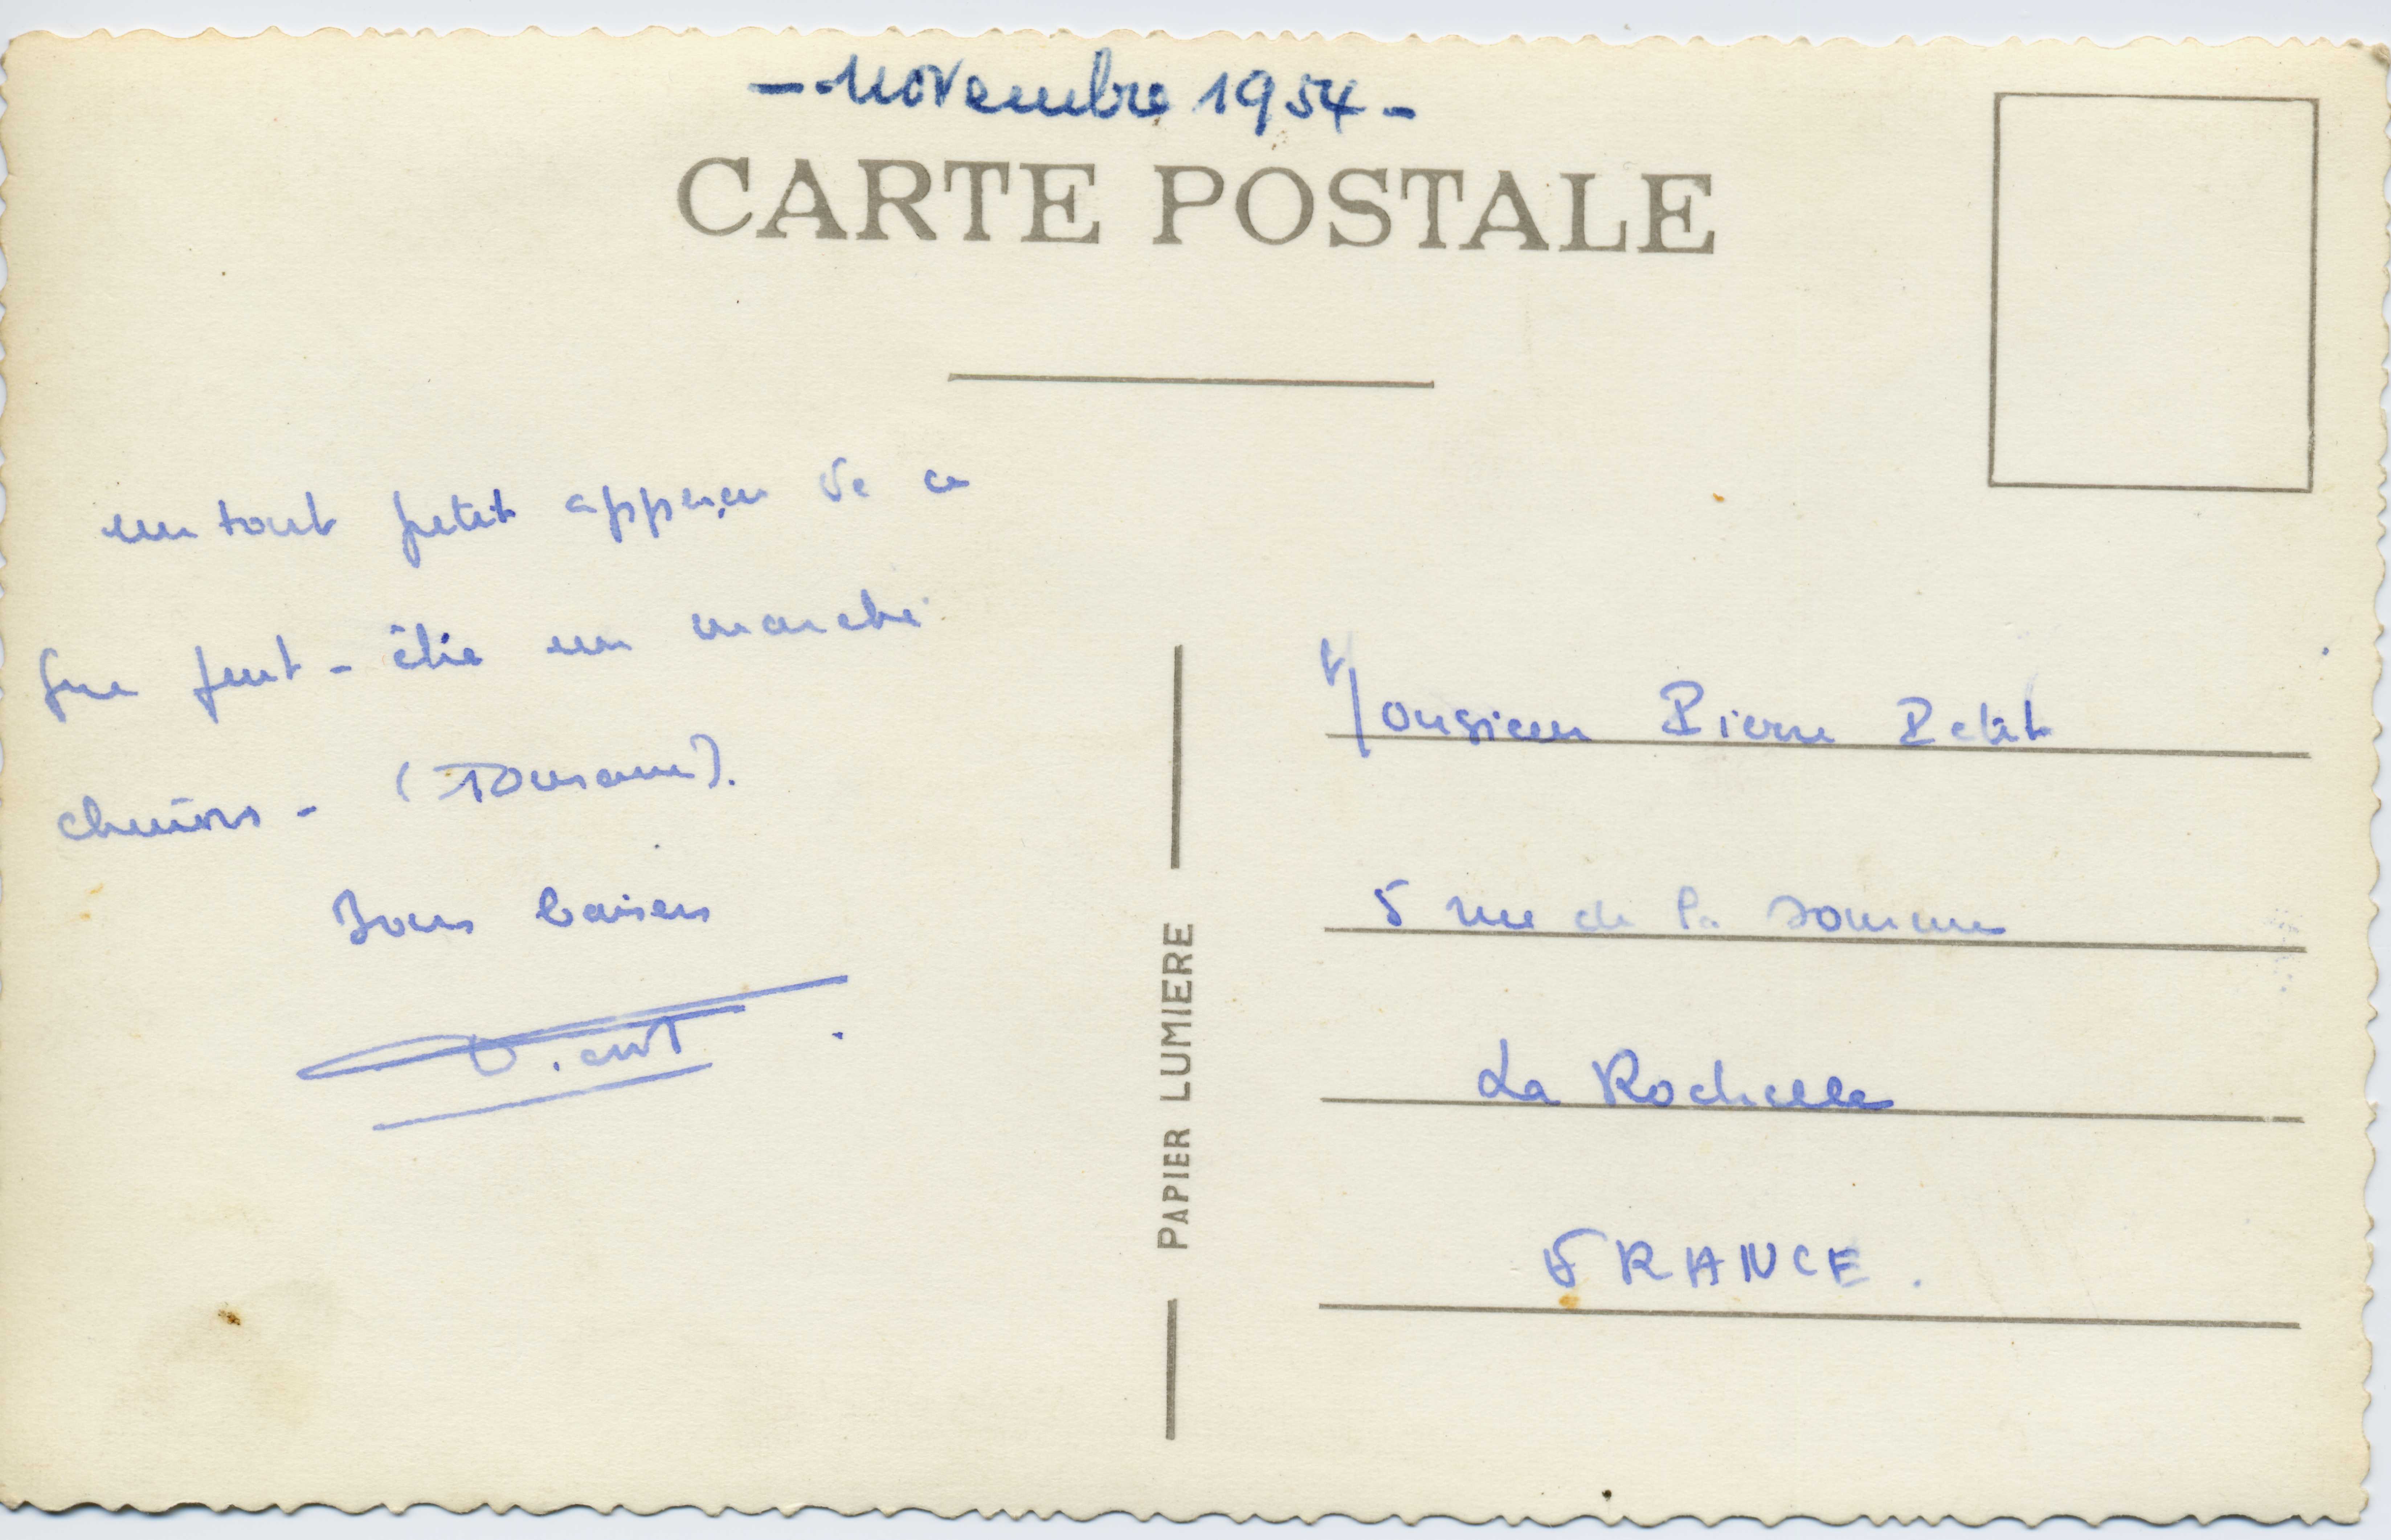 - novembre 1954 -
CARTE POSTALE
un tout petit apperçu de ce
que peut-être un marché
chinois - (Tourane).
Bons baisers
Monsieur Pierre Petit
5 rue de la Somme
La Rochelle
FRANCE.
PAPIER LUMIERE